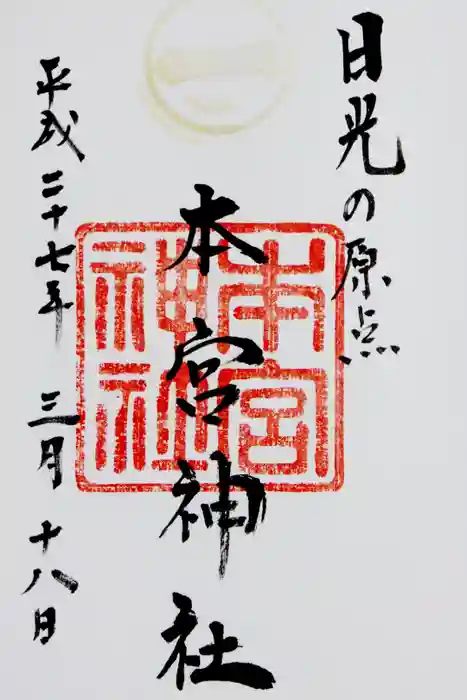 日光の原点
本宮神社
本宮
神社
平成二十七年三月十八日